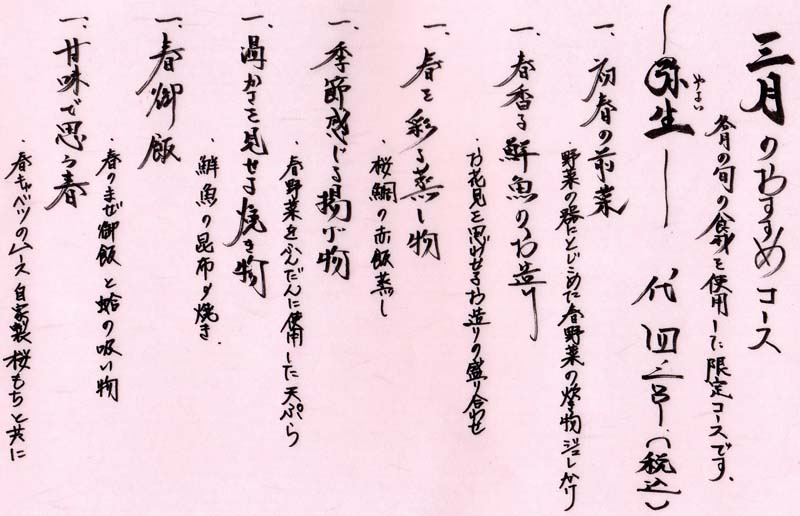 三月のおすすめコース
各月の旬の食材を使用した限定コースです。
やよい
―弥生― 代 四三〇〇（税込）
一、初春の前菜
・野菜の器にとじこめた春野菜の炊物ジュレかけ
一、春香る鮮魚のお造り
・お花見を思わせるお造りの盛り合わせ
一、春を彩る蒸し物
・桜鯛の赤飯蒸し
一、季節感じる揚げ物
・春野菜をふんだんに使用した天ぷら
一、温かさを見せる焼き物
・鮮魚の昆布〆焼き
一、春御飯
・春のまぜ御飯と蛤の吸い物
一、甘味で思う春
・春キャベツのムース自家製桜もちと共に